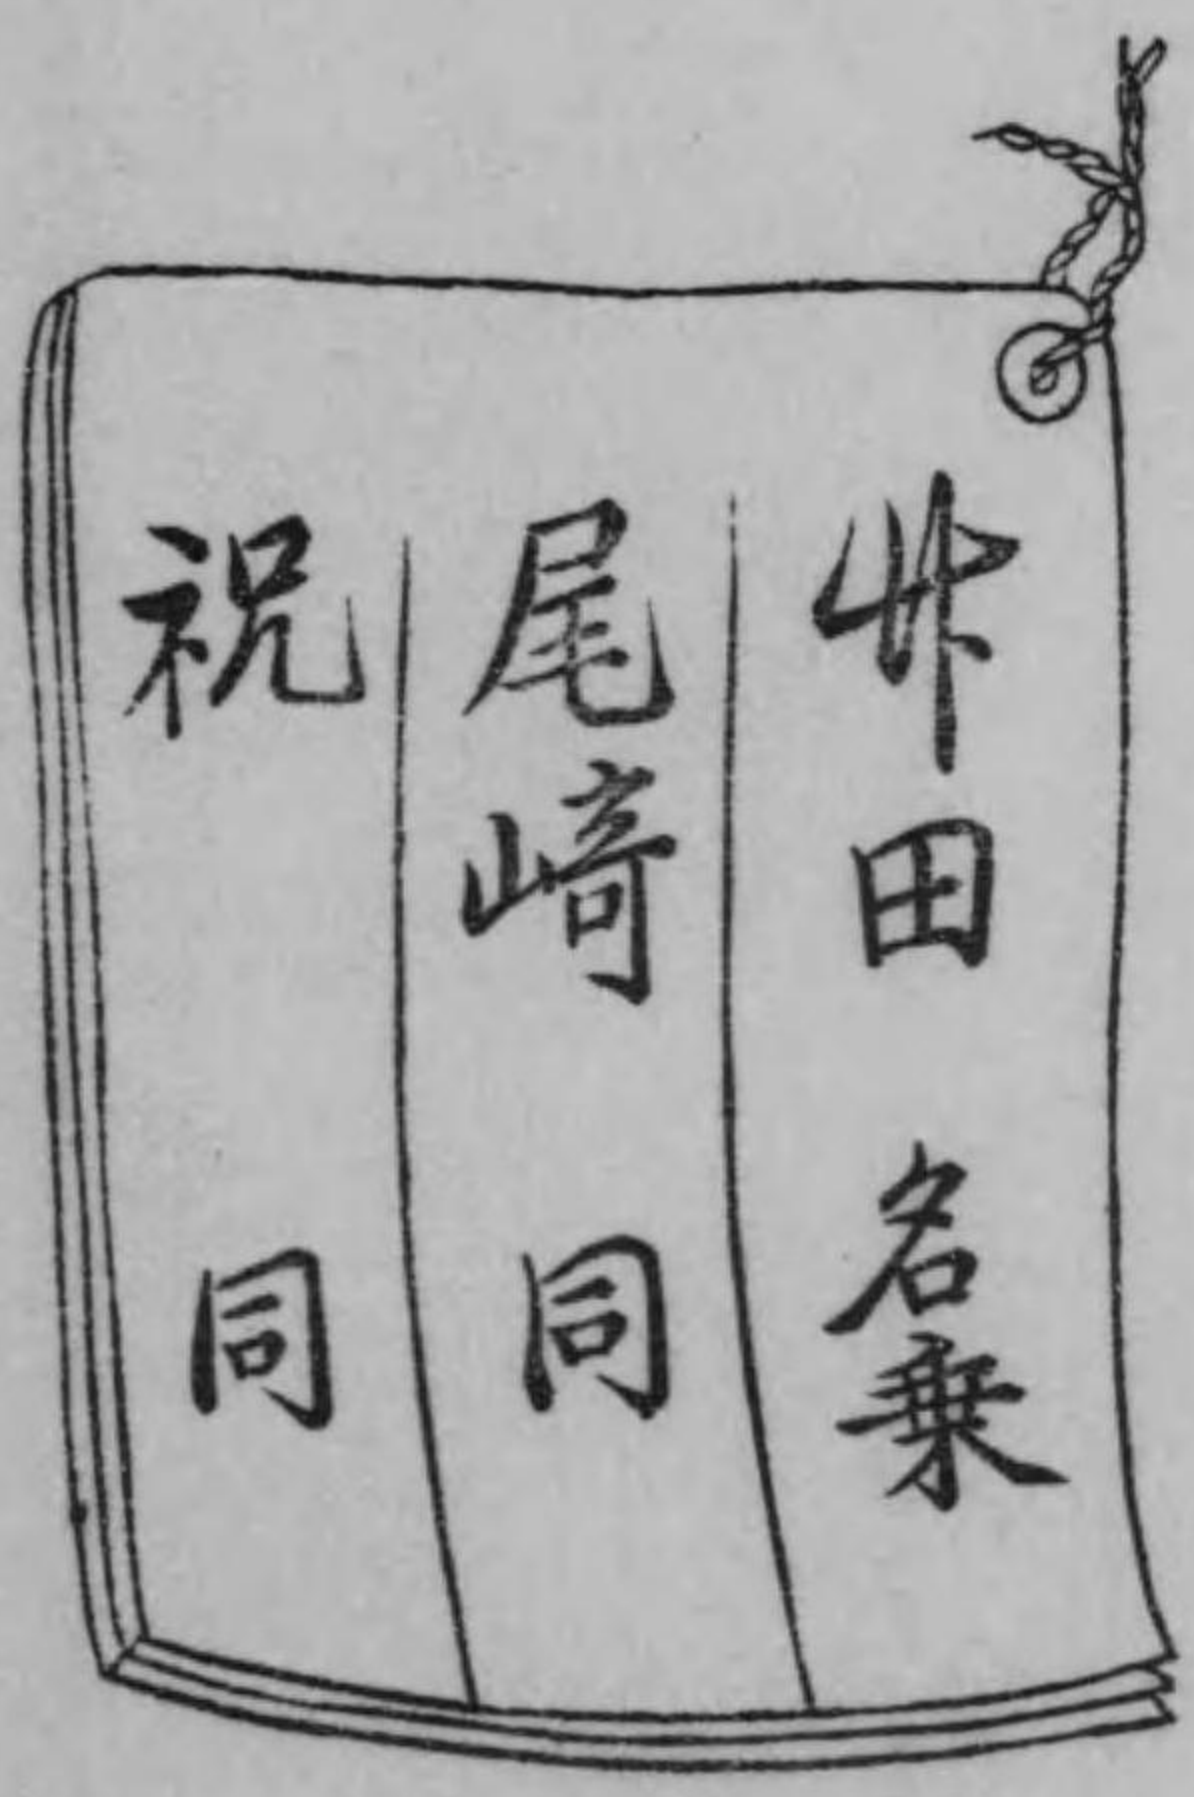 田 名乗
尾﨑 同
祝 同